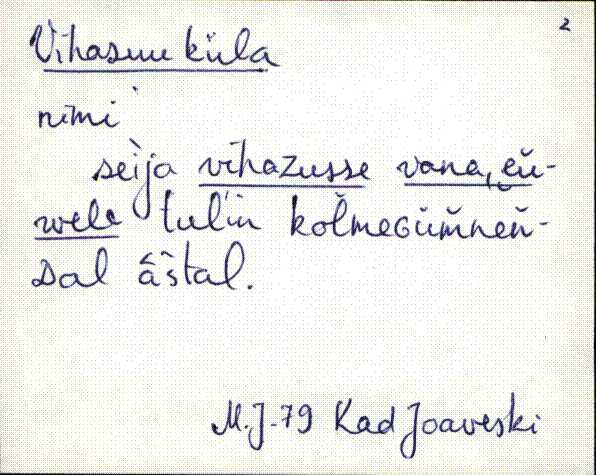 2
Vihasuu küla
nimi
sèi̯ja vihazusse vana, eŭ-
wele tul'in kolmeGümneń-
Dal âštal.
M.J.-79 Kad Joaveski